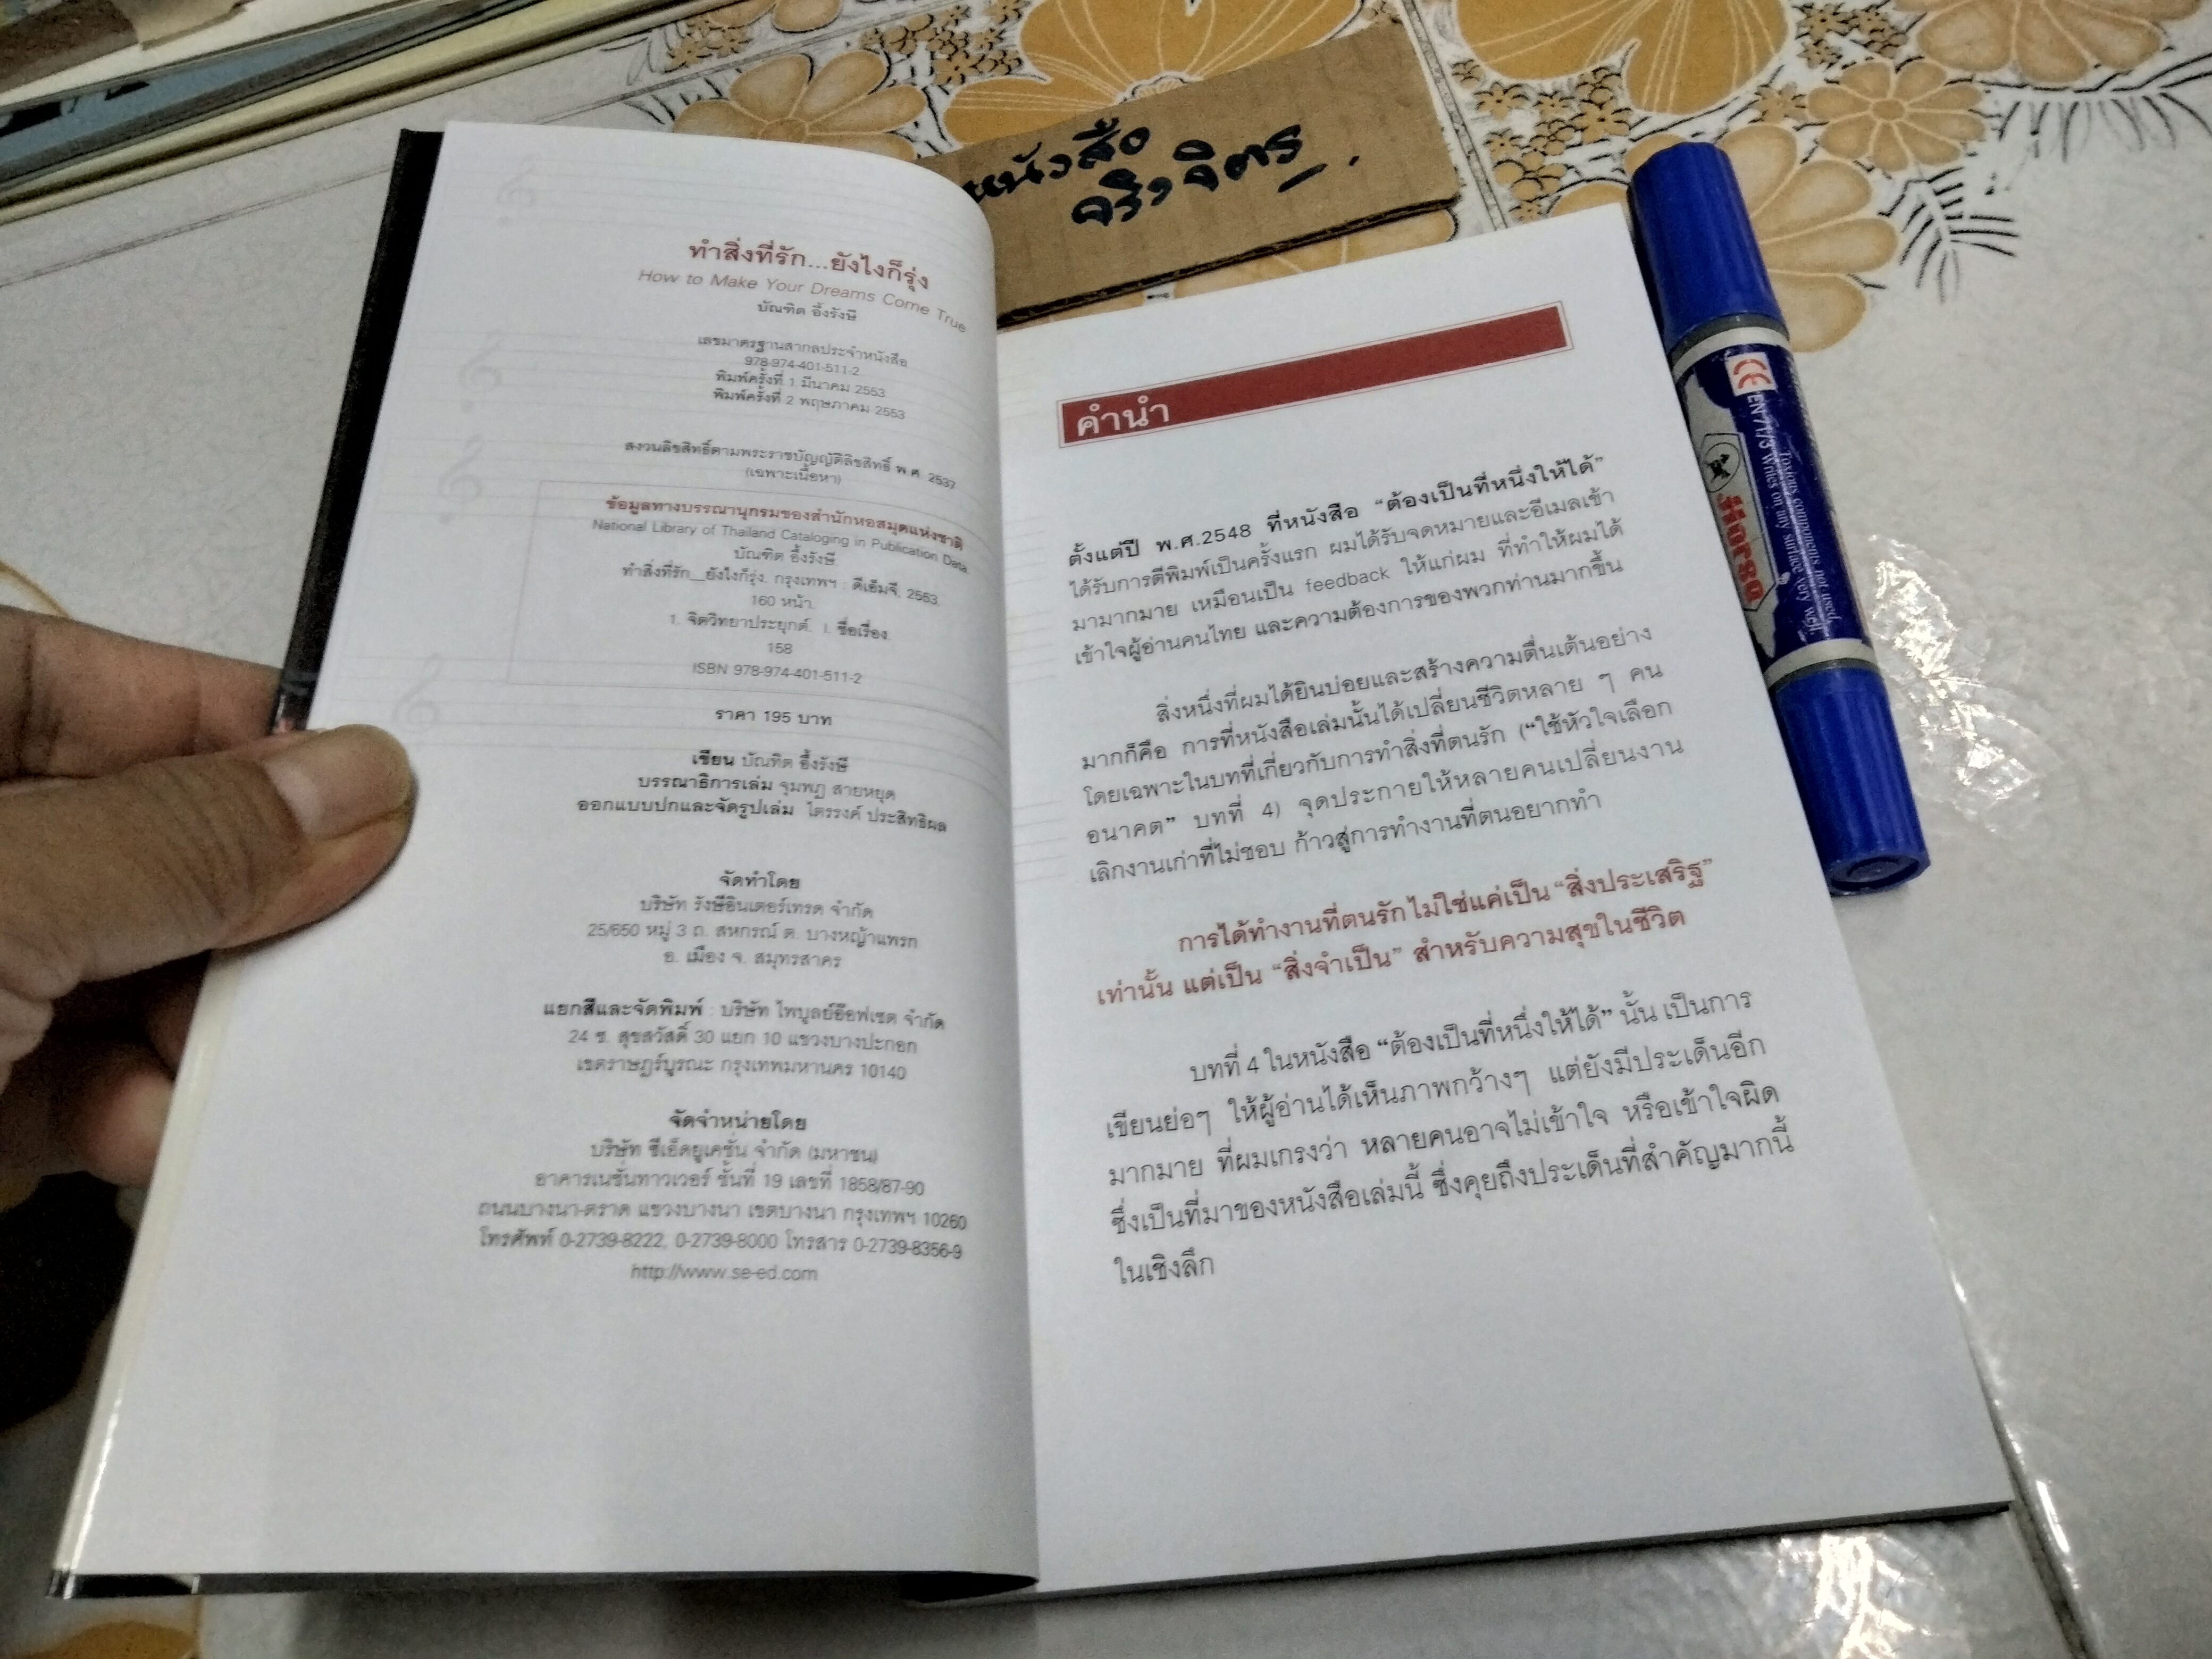 หนังสือ
จริงจิตร
ทำสิ่งที่รัก...ยังไงก็รุ่ง
How to Make Your Dreams Come True
บัณฑิต อึ้งรังษี
เลขมาตรฐานสากลประจำหนังสือ
978-974-401-511-2
พิมพ์ครั้งที่ 1 มีนาคม 2553
พิมพ์ครั้งที่ 2 พฤษภาคม 2553
สงวนลิขสิทธิ์ตามพระราชบัญญัติลิขสิทธิ์ พ.ศ. 2537
(เฉพาะเนื้อหา)
ข้อมูลทางบรรณานุกรมของสำนักหอสมุดแห่งชาติ
National Library of Thailand Cataloging in Publication Data.
บัณฑิต อึ้งรังษี.
ทำสิ่งที่รัก__ยังไงก็รุ่ง. กรุงเทพฯ : ดีเอ็มจี, 2553.
160 หน้า.
1. จิตวิทยาประยุกต์. I. ชื่อเรื่อง.
158
ISBN 978-974-401-511-2
ราคา 195 บาท
เขียน บัณฑิต อึ้งรังษี
บรรณาธิการเล่ม จุมพฏ สายหยุด
ออกแบบปกและจัดรูปเล่ม ไตรรงค์ ประสิทธิผล
จัดทำโดย
บริษัท รังษีอินเตอร์เทรด จำกัด
25/650 หมู่ 3 ถ. สหกรณ์ ต. บางหญ้าแพรก
อ. เมือง จ. สมุทรสาคร
แยกสีและจัดพิมพ์ : บริษัท ไพบูลย์อ๊อฟเซต จำกัด
24 ซ. สุขสวัสดิ์ 30 แยก 10 แขวงบางปะกอก
เขตราษฎร์บูรณะ กรุงเทพมหานคร 10140
จัดจำหน่ายโดย
บริษัท ซีเอ็ดยูเคชั่น จำกัด (มหาชน)
อาคารเนชั่นทาวเวอร์ ชั้นที่ 19 เลขที่ 1858/87-90
ถนนบางนา-ตราด แขวงบางนา เขตบางนา กรุงเทพฯ 10260
โทรศัพท์ 0-2739-8222, 0-2739-8000 โทรสาร 0-2739-8356-9
http://www.se-ed.com
คำนำ
ตั้งแต่ปี พ.ศ.2548 ที่หนังสือ “ต้องเป็นที่หนึ่งให้ได้”
ได้รับการตีพิมพ์เป็นครั้งแรก ผมได้รับจดหมายและอีเมลเข้า
มามากมาย เหมือนเป็น feedback ให้แก่ผม ที่ทำให้ผมได้
เข้าใจผู้อ่านคนไทย และความต้องการของพวกท่านมากขึ้น
สิ่งหนึ่งที่ผมได้ยินบ่อยและสร้างความตื่นเต้นอย่าง
มากก็คือ การที่หนังสือเล่มนั้นได้เปลี่ยนชีวิตหลาย ๆ คน
โดยเฉพาะในบทที่เกี่ยวกับการทำสิ่งที่ตนรัก (“ใช้หัวใจเลือก
อนาคต” บทที่ 4) จุดประกายให้หลายคนเปลี่ยนงาน
เลิกงานเก่าที่ไม่ชอบ ก้าวสู่การทำงานที่ตนอยากทำ
การได้ทำงานที่ตนรักไม่ใช่แค่เป็น “สิ่งประเสริฐ”
เท่านั้น แต่เป็น “สิ่งจำเป็น” สำหรับความสุขในชีวิต
บทที่ 4 ในหนังสือ “ต้องเป็นที่หนึ่งให้ได้” นั้น เป็นการ
เขียนย่อๆ ให้ผู้อ่านได้เห็นภาพกว้างๆ แต่ยังมีประเด็นอีก
มากมาย ที่ผมเกรงว่า หลายคนอาจไม่เข้าใจ หรือเข้าใจผิด
ซึ่งเป็นที่มาของหนังสือเล่มนี้ ซึ่งคุยถึงประเด็นที่สำคัญมากนี้
ในเชิงลึก
CE
EN71/3 Writes on any surface very well.
Toxious components not used.
Horse